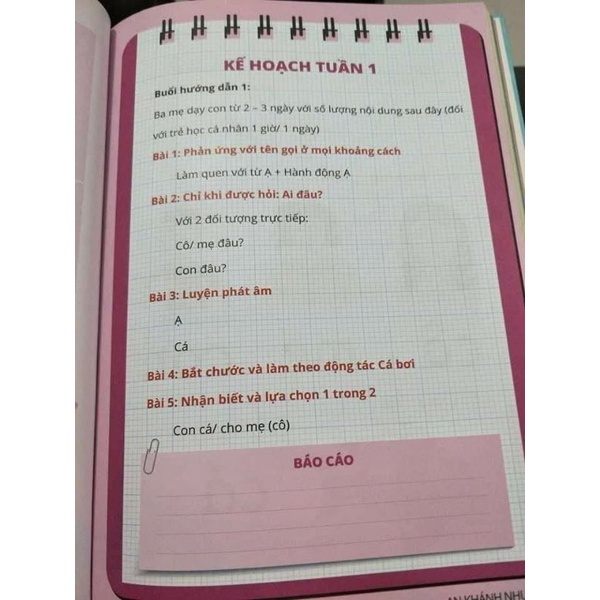 KẾ HOẠCH TUẦN 1
Buổi hướng dẫn 1:
Ba mẹ dạy con từ 2 – 3 ngày với số lượng nội dung sau đây (đối
với trẻ học cá nhân 1 giờ/ 1 ngày)
Bài 1: Phản ứng với tên gọi ở mọi khoảng cách
Làm quen với từ Ạ + Hành động Ạ
Bài 2: Chỉ khi được hỏi: Ai đâu?
Với 2 đối tượng trực tiếp:
Cô/ mẹ đâu?
Con đâu?
Bài 3: Luyện phát âm
Ạ
Cá
Bài 4: Bắt chước và làm theo động tác Cá bơi
Bài 5: Nhận biết và lựa chọn 1 trong 2
Con cá/ cho mẹ (cô)
BÁO CÁO
KHÁNH